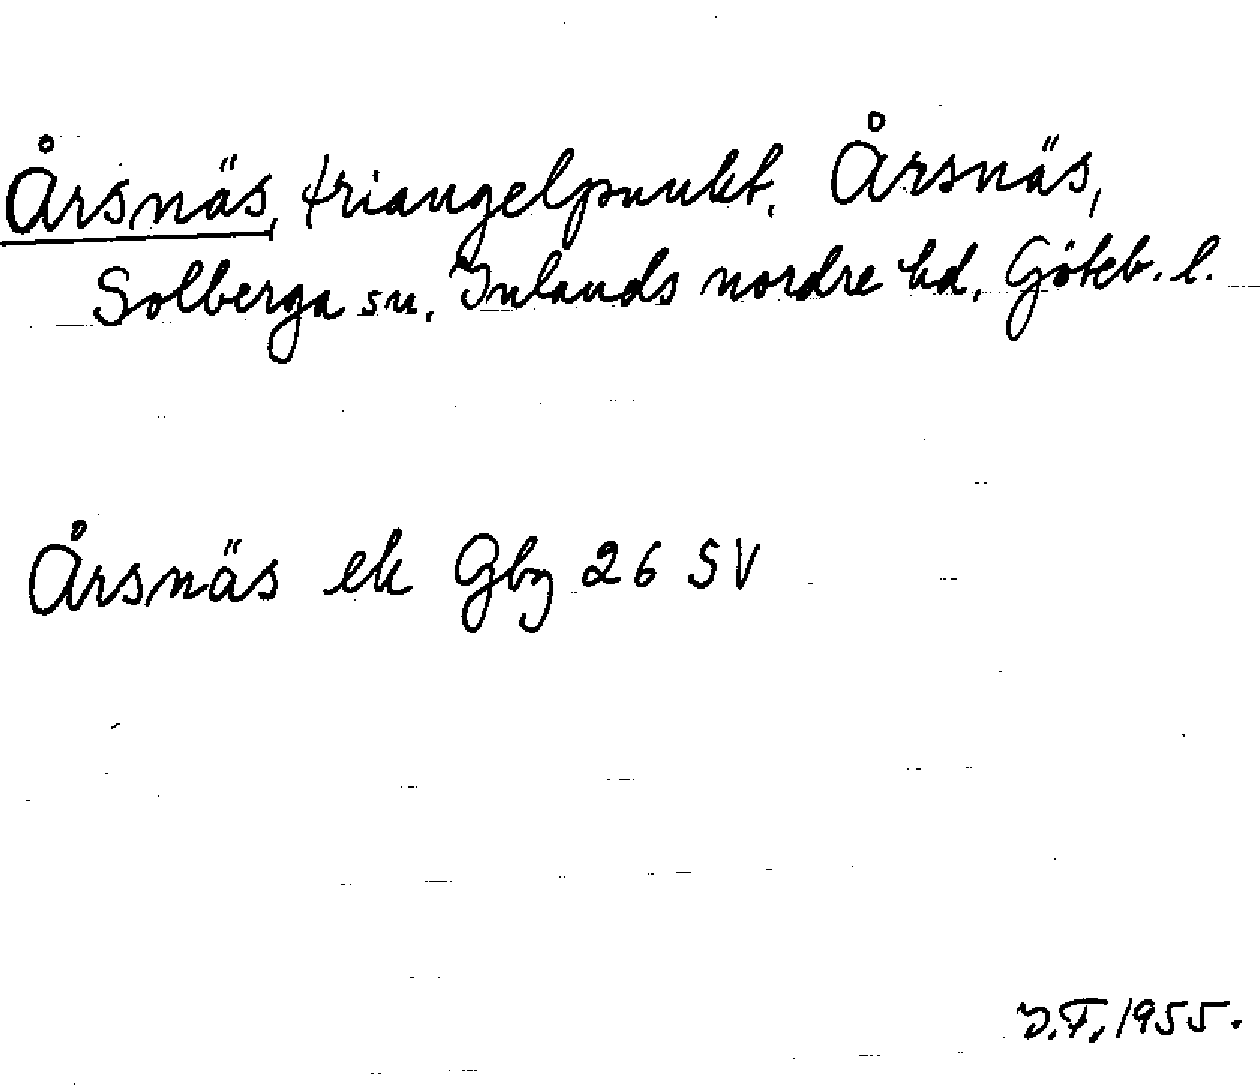 Årsnäs, triangelpunkt, Årsnäs,
Solberga sn, Inlands nordre hd, Göteb. l.
Årsnäs ek Gbg 26 SV
J.F. 1955.